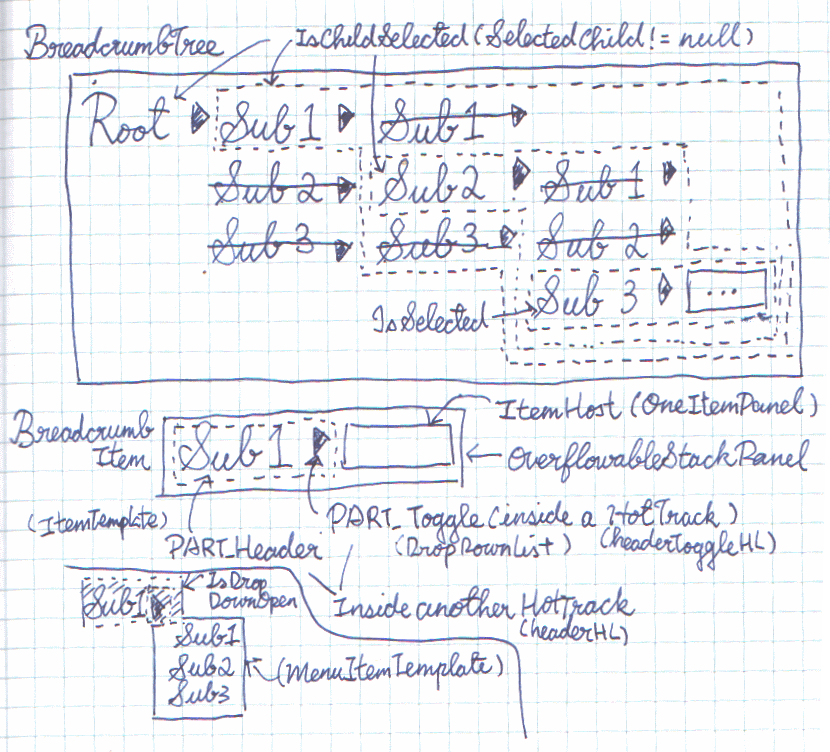 BreadcrumbTree
IsChildSelected (SelectedChild != null)
Root Sub 1 Sub 1
Sub 2 Sub 2 Sub 1
Sub 3 Sub 3 Sub 2
Sub 3 ...
IsSelected
ItemHost (OneItemPanel)
Breadcrumb
Item
Sub 1
OverflowableStackPanel
(ItemTemplate)
PART_Header
PART_Toggle (inside a HotTrack)
(DropDownList) (headerToggleHL)
Sub1
IsDrop
DownOpen
Inside another HotTrack
(headerHL)
Sub1
Sub2
Sub3
(MenuItemTemplate)